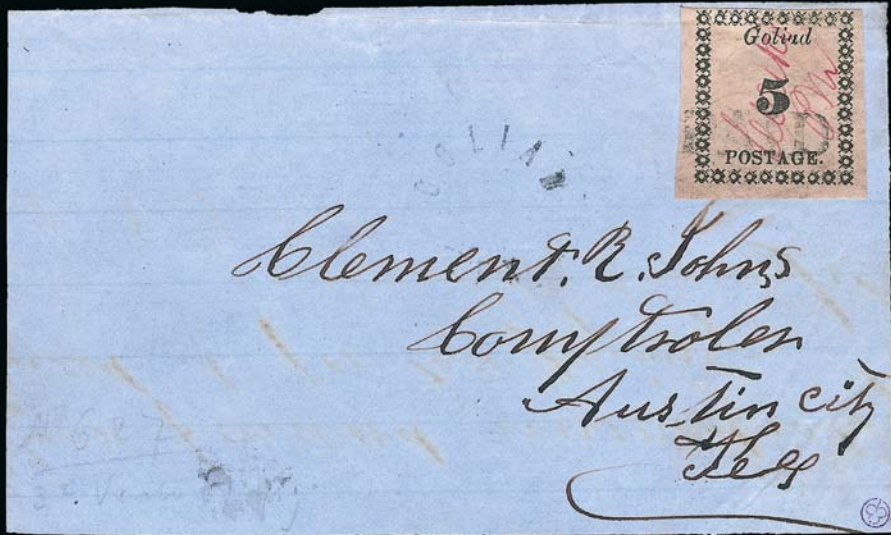 Goliad
5
PAID
POSTAGE.
GOLIAD
Clement. R. Johns
Comptroler
Austin city
Tex